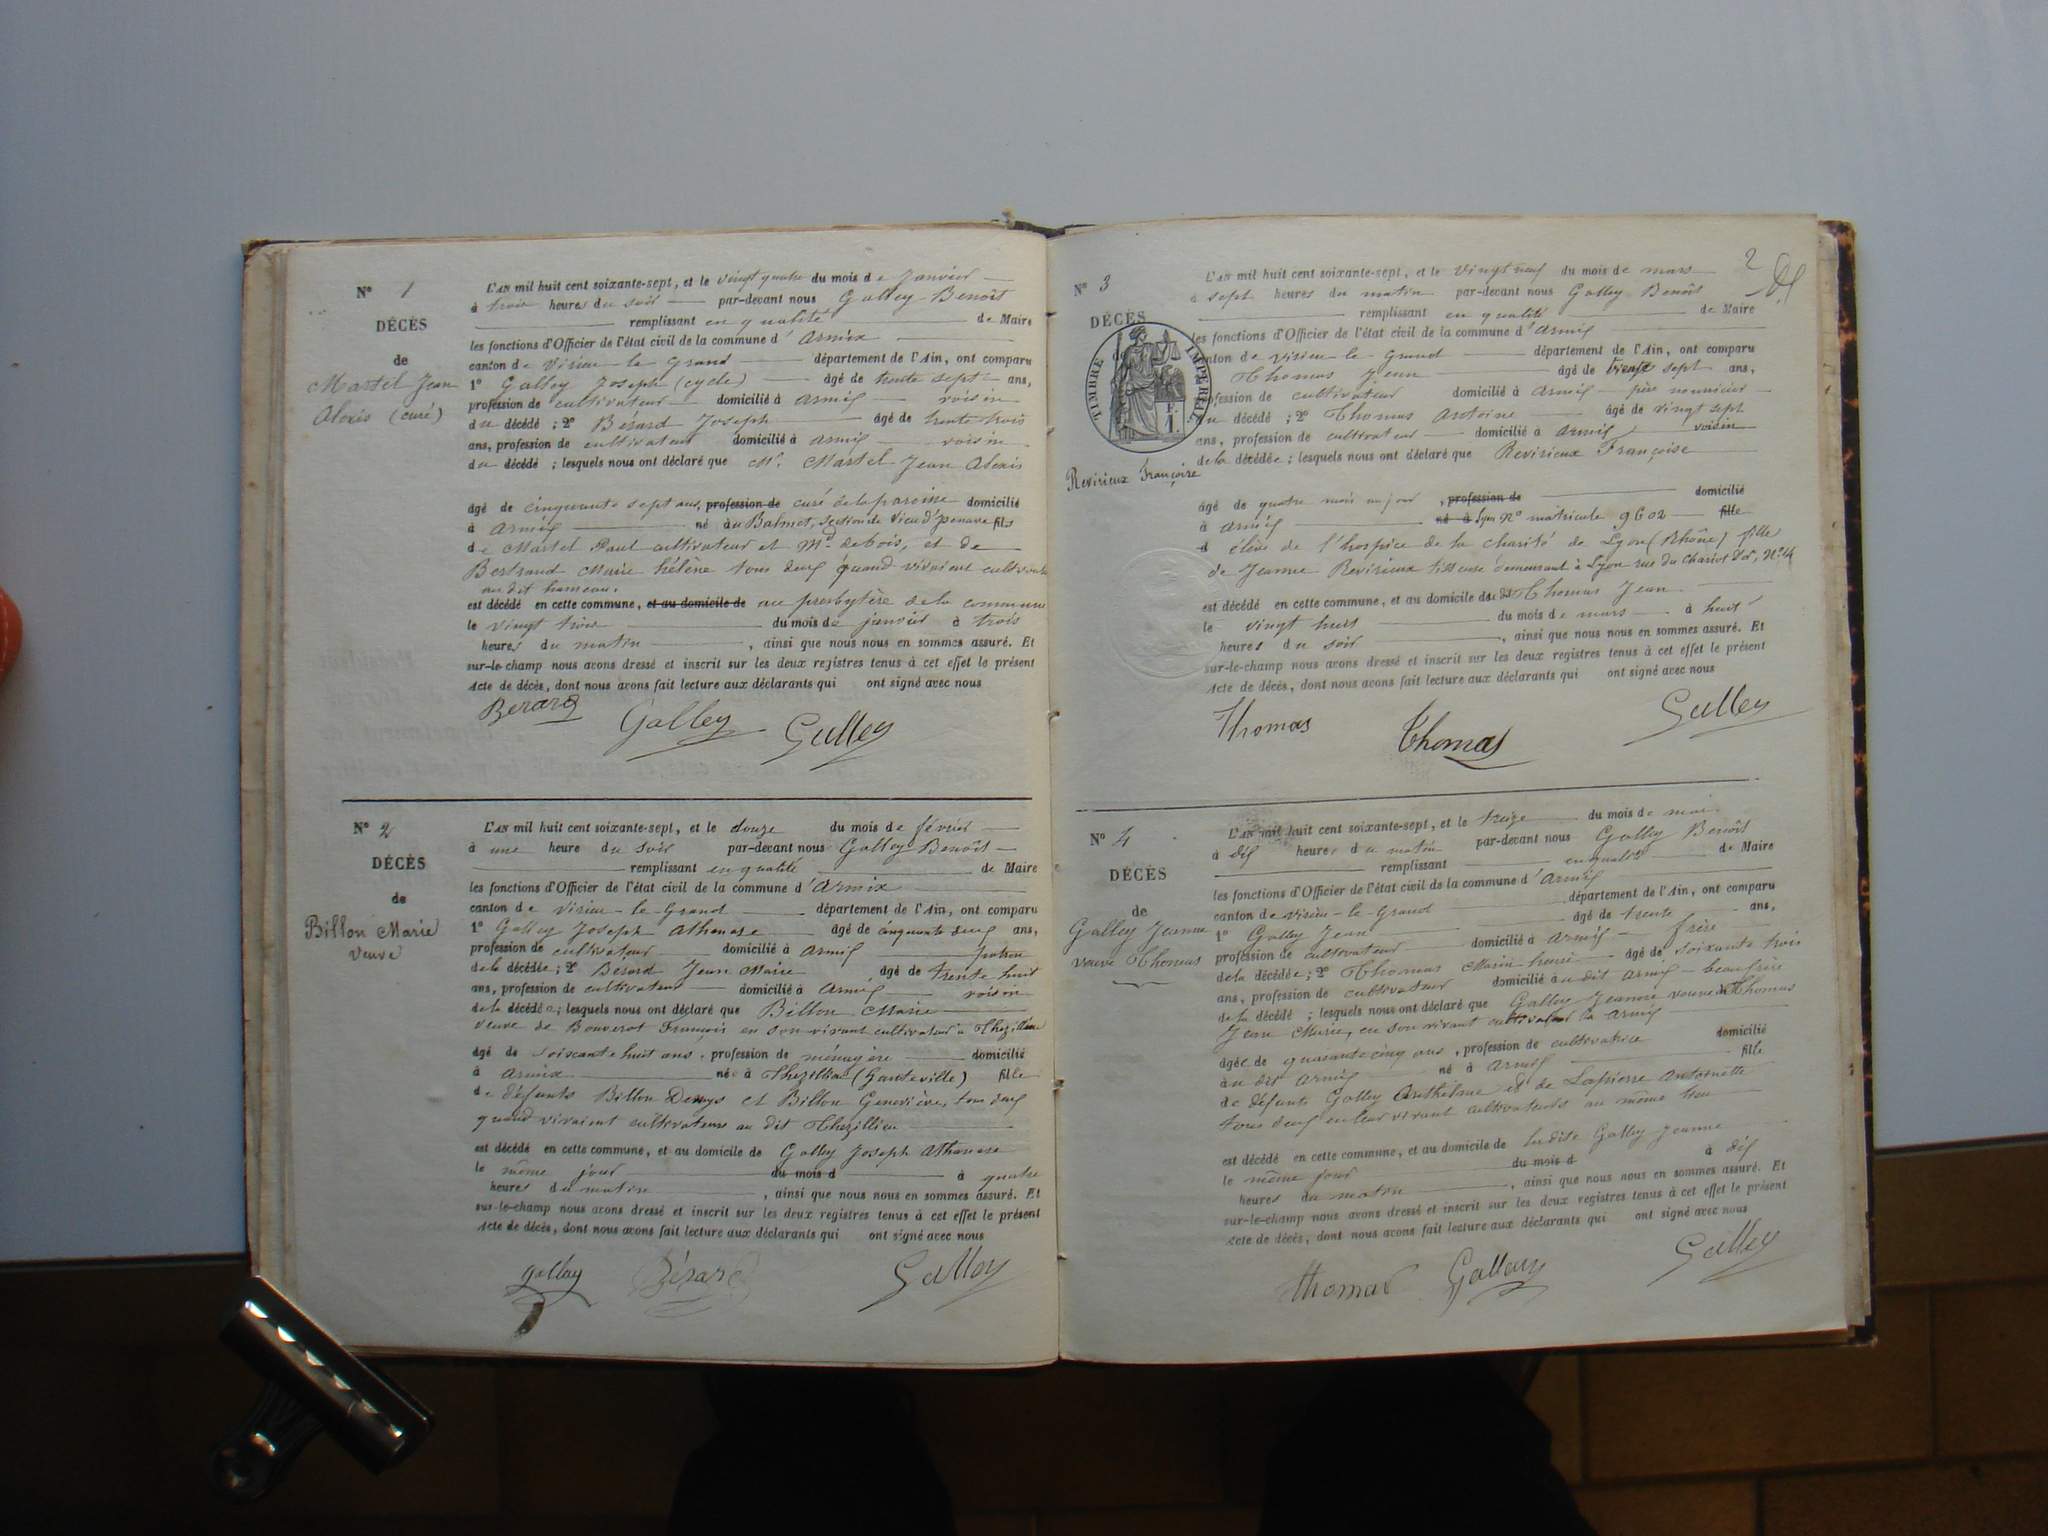 N° 1
DÉCÈS
de
Martel Jean
Alexis (curé)
L'AN mil huit cent soixante-sept, et le vingt quatre du mois de Janvier
à trois heures du soir par-devant nous Galley Benoît
remplissant en qualité de Maire
les fonctions d'Officier de l'état civil de la commune d'Armix
canton de Virieu-le-Grand département de l'Ain, ont comparu
1° Galley Joseph (cycle) âgé de trente sept ans,
profession de cultivateur domicilié à Armix voisin
du décédé ; 2° Bérard Joseph âgé de trente trois
ans, profession de cultivateur domicilié à Armix voisin
du décédé ; lesquels nous ont déclaré que Mr. Martel Jean Alexis
âgé de cinquante sept ans, profession de curé de la paroisse domicilié
à Armix né au Balmet, section de Vieu d'Izenave fils
de Martel Paul cultivateur et Md de bois, et de
Bertrand Marie hélène tous deux quand vivaient cultivateurs
au dit hameau.
est décédé en cette commune, et au domicile de au presbytère de la commune
le vingt trois du mois de janvier à trois
heures du matin, ainsi que nous nous en sommes assuré. Et
sur-le-champ nous avons dressé et inscrit sur les deux registres tenus à cet effet le présent
Acte de décès, dont nous avons fait lecture aux déclarants qui ont signé avec nous
Berard Galley Galley
N° 2
DÉCÈS
de
Billon Marie
veuve
L'AN mil huit cent soixante-sept, et le douze du mois de février
à une heure du soir par-devant nous Galley Benoît
remplissant en qualité de Maire
les fonctions d'Officier de l'état civil de la commune d'Armix
canton de Virieu-le-Grand département de l'Ain, ont comparu
1° Galley Joseph Athanase âgé de cinquante deux ans,
profession de cultivateur domicilié à Armix patron
de la décédée ; 2° Berard Jean Marie âgé de trente huit
ans, profession de cultivateur domicilié à Armix voisin
de la décédée ; lesquels nous ont déclaré que Billon Marie
veuve de Bouverot François en son vivant cultivateur à Thezillieu
âgé de soixante huit ans, profession de ménagère domicilié
à Armix née à Thezillieu (Ganteville) fille
de défunts Billon Denys et Billon Geneviève, tous deux
quand vivaient cultivateurs au dit Thezillieu
est décédé en cette commune, et au domicile de Galley Joseph Athanase
le même jour du mois d à quatre
heures du matin, ainsi que nous nous en sommes assuré. Et
sur-le-champ nous avons dressé et inscrit sur les deux registres tenus à cet effet le présent
Acte de décès, dont nous avons fait lecture aux déclarants qui ont signé avec nous
Galley Bérard Galley
2
N° 3
DÉCÈS
de
TIMBRE IMPÉRIAL
1 F.
Revirieux Françoise
L'AN mil huit cent soixante-sept, et le vingt neuf du mois de mars
à sept heures du matin par-devant nous Galley Benoît
remplissant en qualité de Maire
les fonctions d'Officier de l'état civil de la commune d'Armix
canton de Virieu-le-Grand département de l'Ain, ont comparu
Thomas Jean âgé de trente sept ans,
profession de cultivateur domicilié à Armix père nourricier
du décédé ; 2° Thomas Antoine âgé de vingt sept
ans, profession de cultivateur domicilié à Armix voisin
de la décédée ; lesquels nous ont déclaré que Revirieux Françoise
âgé de quatre mois un jour, profession de domicilié
à Armix né à Lyon N° matricule 9602 fille
d élève de l'hospice de la charité de Lyon (Rhône) fille
de Jeanne Revirieux tisseuse demeurant à Lyon rue du Chariot d'or, N° 14
est décédé en cette commune, et au domicile du dt Thomas Jean
le vingt huit du mois de mars à huit
heures du soir, ainsi que nous nous en sommes assuré. Et
sur-le-champ nous avons dressé et inscrit sur les deux registres tenus à cet effet le présent
Acte de décès, dont nous avons fait lecture aux déclarants qui ont signé avec nous
Thomas Thomas Galley
N° 4
DÉCÈS
de
Galley Jeanne
veuve Thomas
L'AN mil huit cent soixante-sept, et le treize du mois de mai
à dix heures du matin par-devant nous Galley Benoît
remplissant en qualité de Maire
les fonctions d'Officier de l'état civil de la commune d'Armix
canton de Virieu-le-Grand département de l'Ain, ont comparu
1° Galley Jean âgé de trente ans,
profession de cultivateur domicilié à Armix frère
de la décédée ; 2° Thomas Marin henri âgé de soixante trois
ans, profession de cultivateur domicilié au dit Armix beaufrère
de la décédée ; lesquels nous ont déclaré que Galley Jeanne veuve de Thomas
Jean Marie, en son vivant cultivateur à Armix
âgée de quarante cinq ans, profession de cultivatrice domicilié
au dit Armix né à Armix fille
de défunts Galley Anthelme et de Lapierre Antoinette
tous deux en leur vivant cultivateurs au même lieu
est décédé en cette commune, et au domicile de ladite Galley Jeanne
le même jour du mois d à dix
heures du matin, ainsi que nous nous en sommes assuré. Et
sur-le-champ nous avons dressé et inscrit sur les deux registres tenus à cet effet le présent
Acte de décès, dont nous avons fait lecture aux déclarants qui ont signé avec nous
Thomas Galley Galley